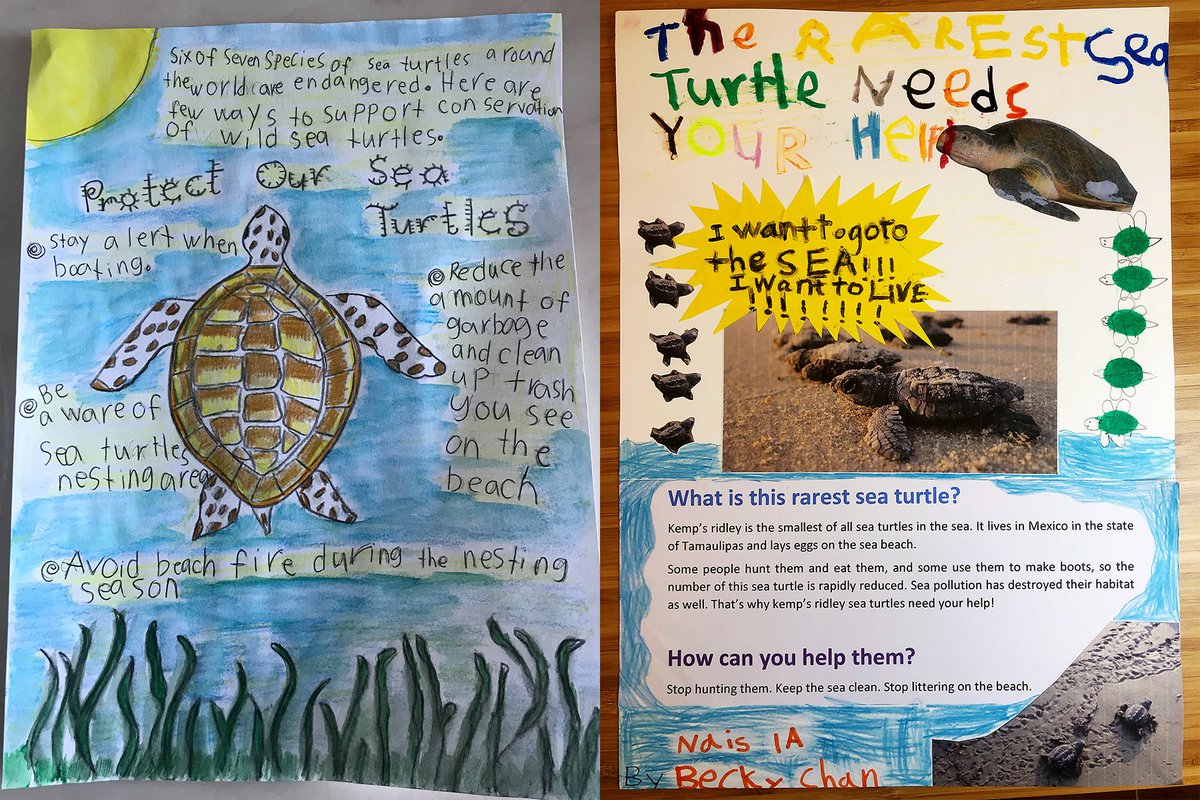 Six of Seven Species of sea turtles around
the world are endangered. Here are
few ways to support conservation
of wild sea turtles.
Protect Our Sea
Turtles
@ Stay alert when
boating.
@ Reduce the
amount of
garbage
and clean
up trash
you see
on the
beach
@ Be
aware of
Sea turtles
nesting area
@ Avoid beach fire during the nesting
season
The RAREst Sea
Turtle Needs
YOUR Help
I want to go to
the SEA!!!
I want to LIVE
!!!!!!!!
What is this rarest sea turtle?
Kemp's ridley is the smallest of all sea turtles in the sea. It lives in Mexico in the state
of Tamaulipas and lays eggs on the sea beach.
Some people hunt them and eat them, and some use them to make boots, so the
number of this sea turtle is rapidly reduced. Sea pollution has destroyed their habitat
as well. That's why kemp's ridley sea turtles need your help!
How can you help them?
Stop hunting them. Keep the sea clean. Stop littering on the beach.
Nais 1A
By Becky Chan